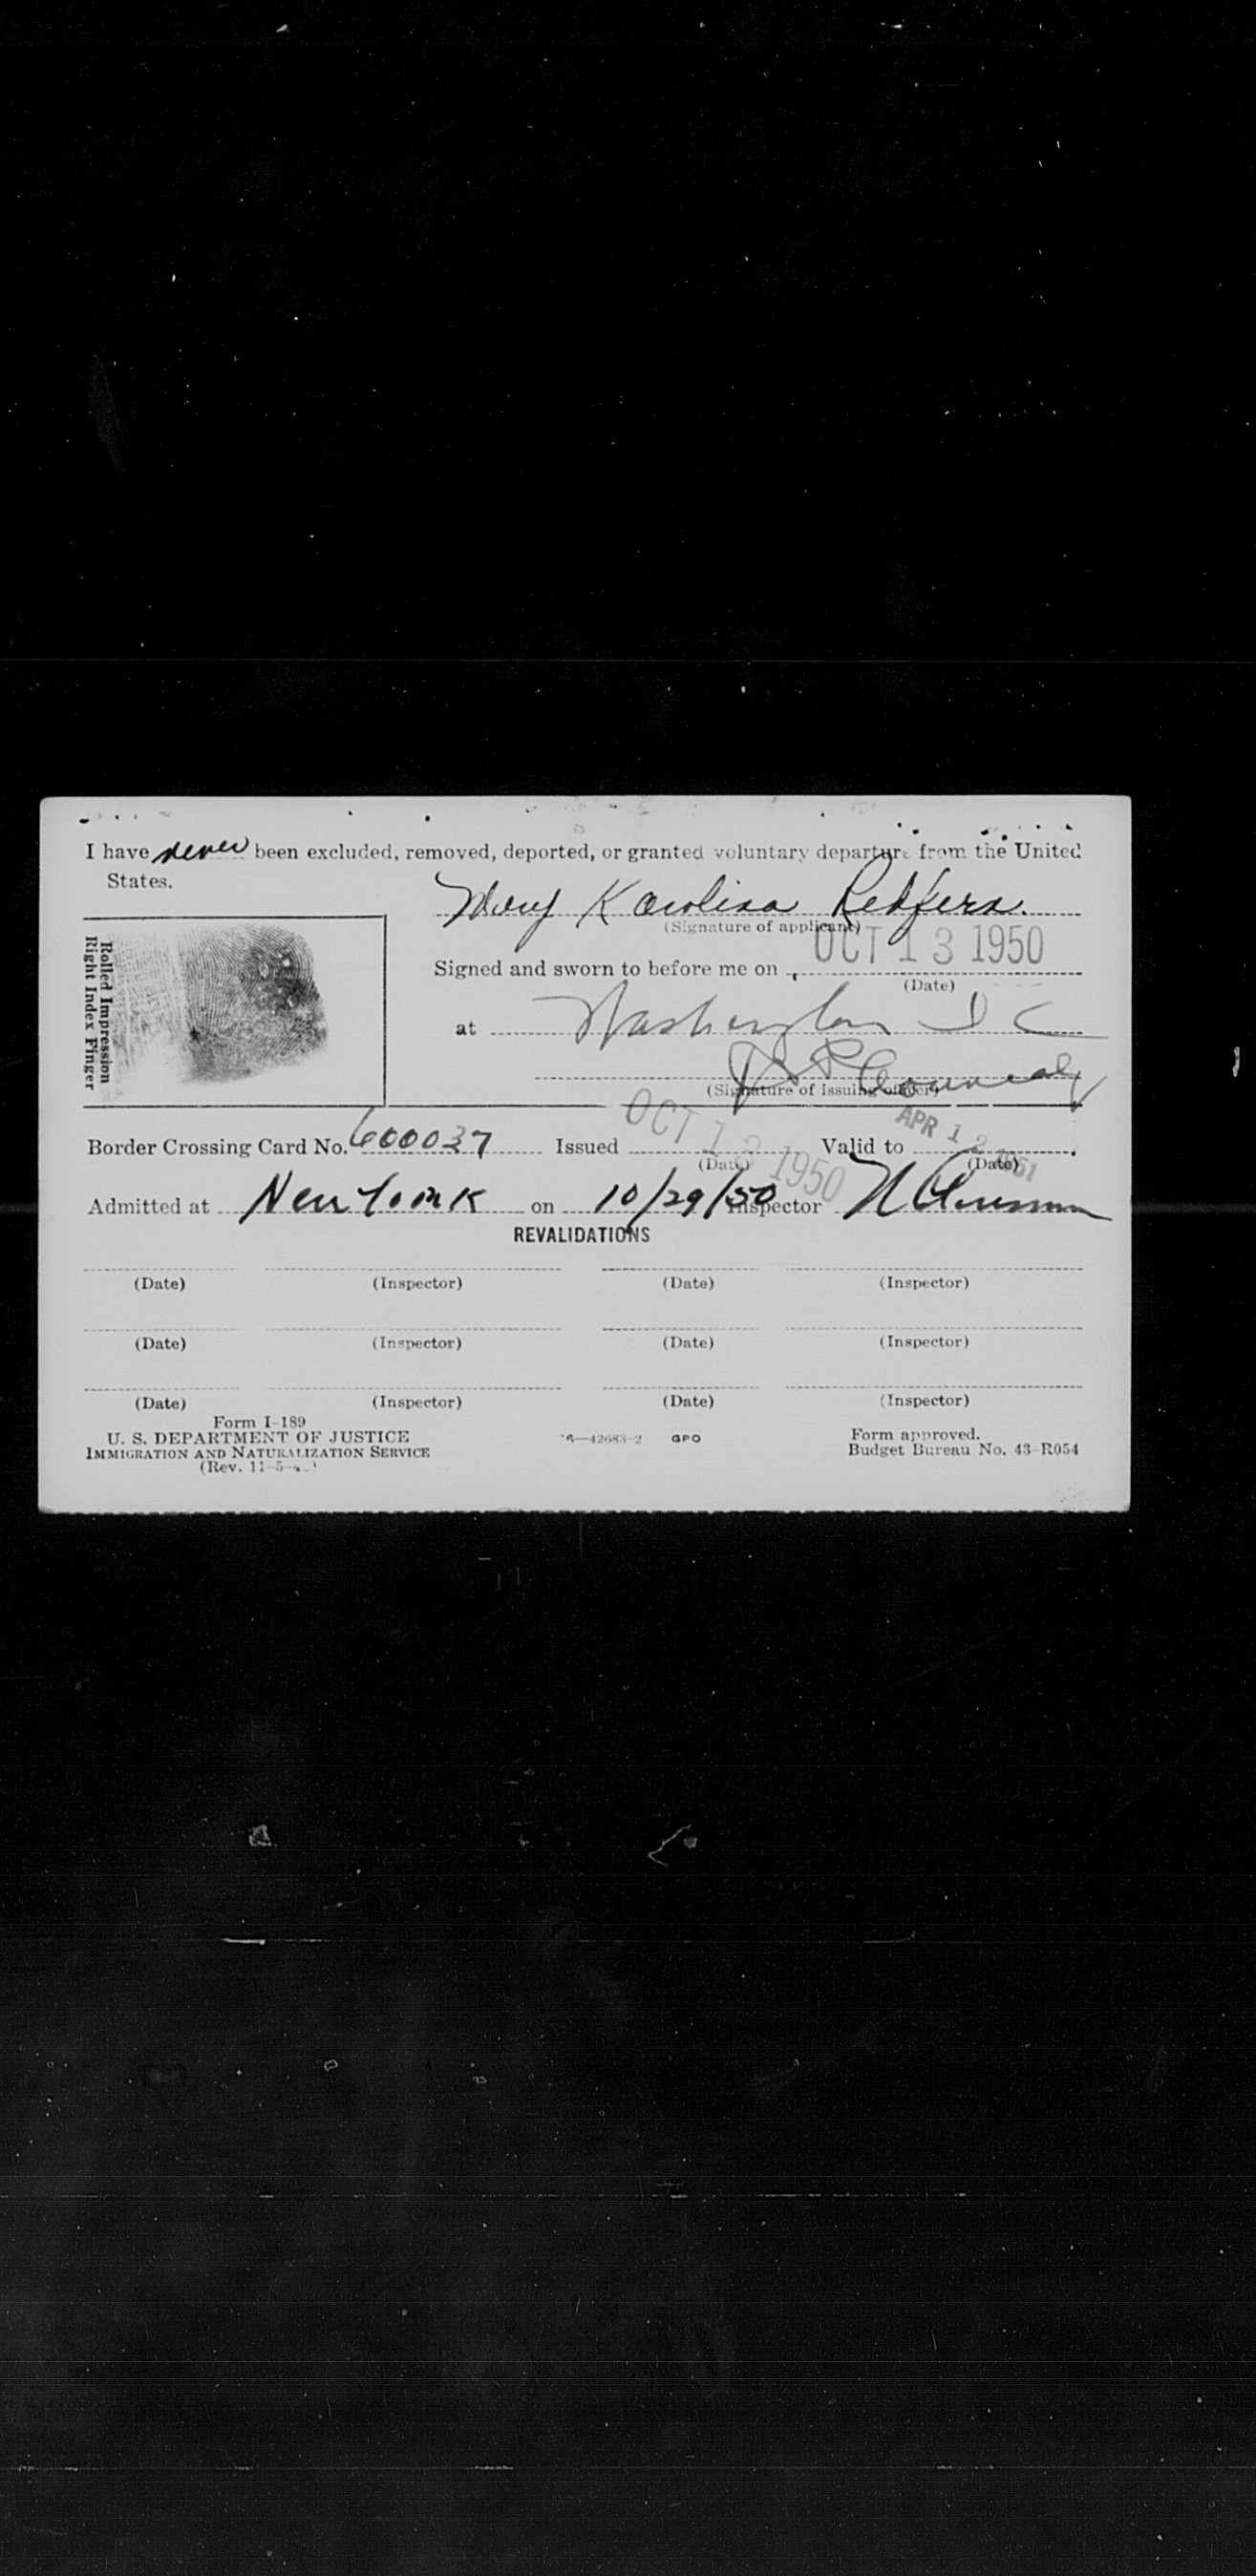 I have never been excluded, removed, deported, or granted voluntary departure from the United
States.
Mary Karolina Redfern.
(Signature of applicant)
Rolled Impression
Right Index Finger
OCT 13 1950
Signed and sworn to before me on
(Date)
at Washington D C
(Signature of issuing officer)
Border Crossing Card No. 600037 Issued OCT 13 1950 Valid to APR 12 1951
(Date) (Date)
Admitted at New York on 10/29/50 Inspector
REVALIDATIONS
(Date) (Inspector) (Date) (Inspector)
(Date) (Inspector) (Date) (Inspector)
(Date) (Inspector) (Date) (Inspector)
Form I-189
U. S. DEPARTMENT OF JUSTICE
IMMIGRATION AND NATURALIZATION SERVICE
(Rev. 11-5-
16—42683-2 GPO
Form approved.
Budget Bureau No. 43-R054